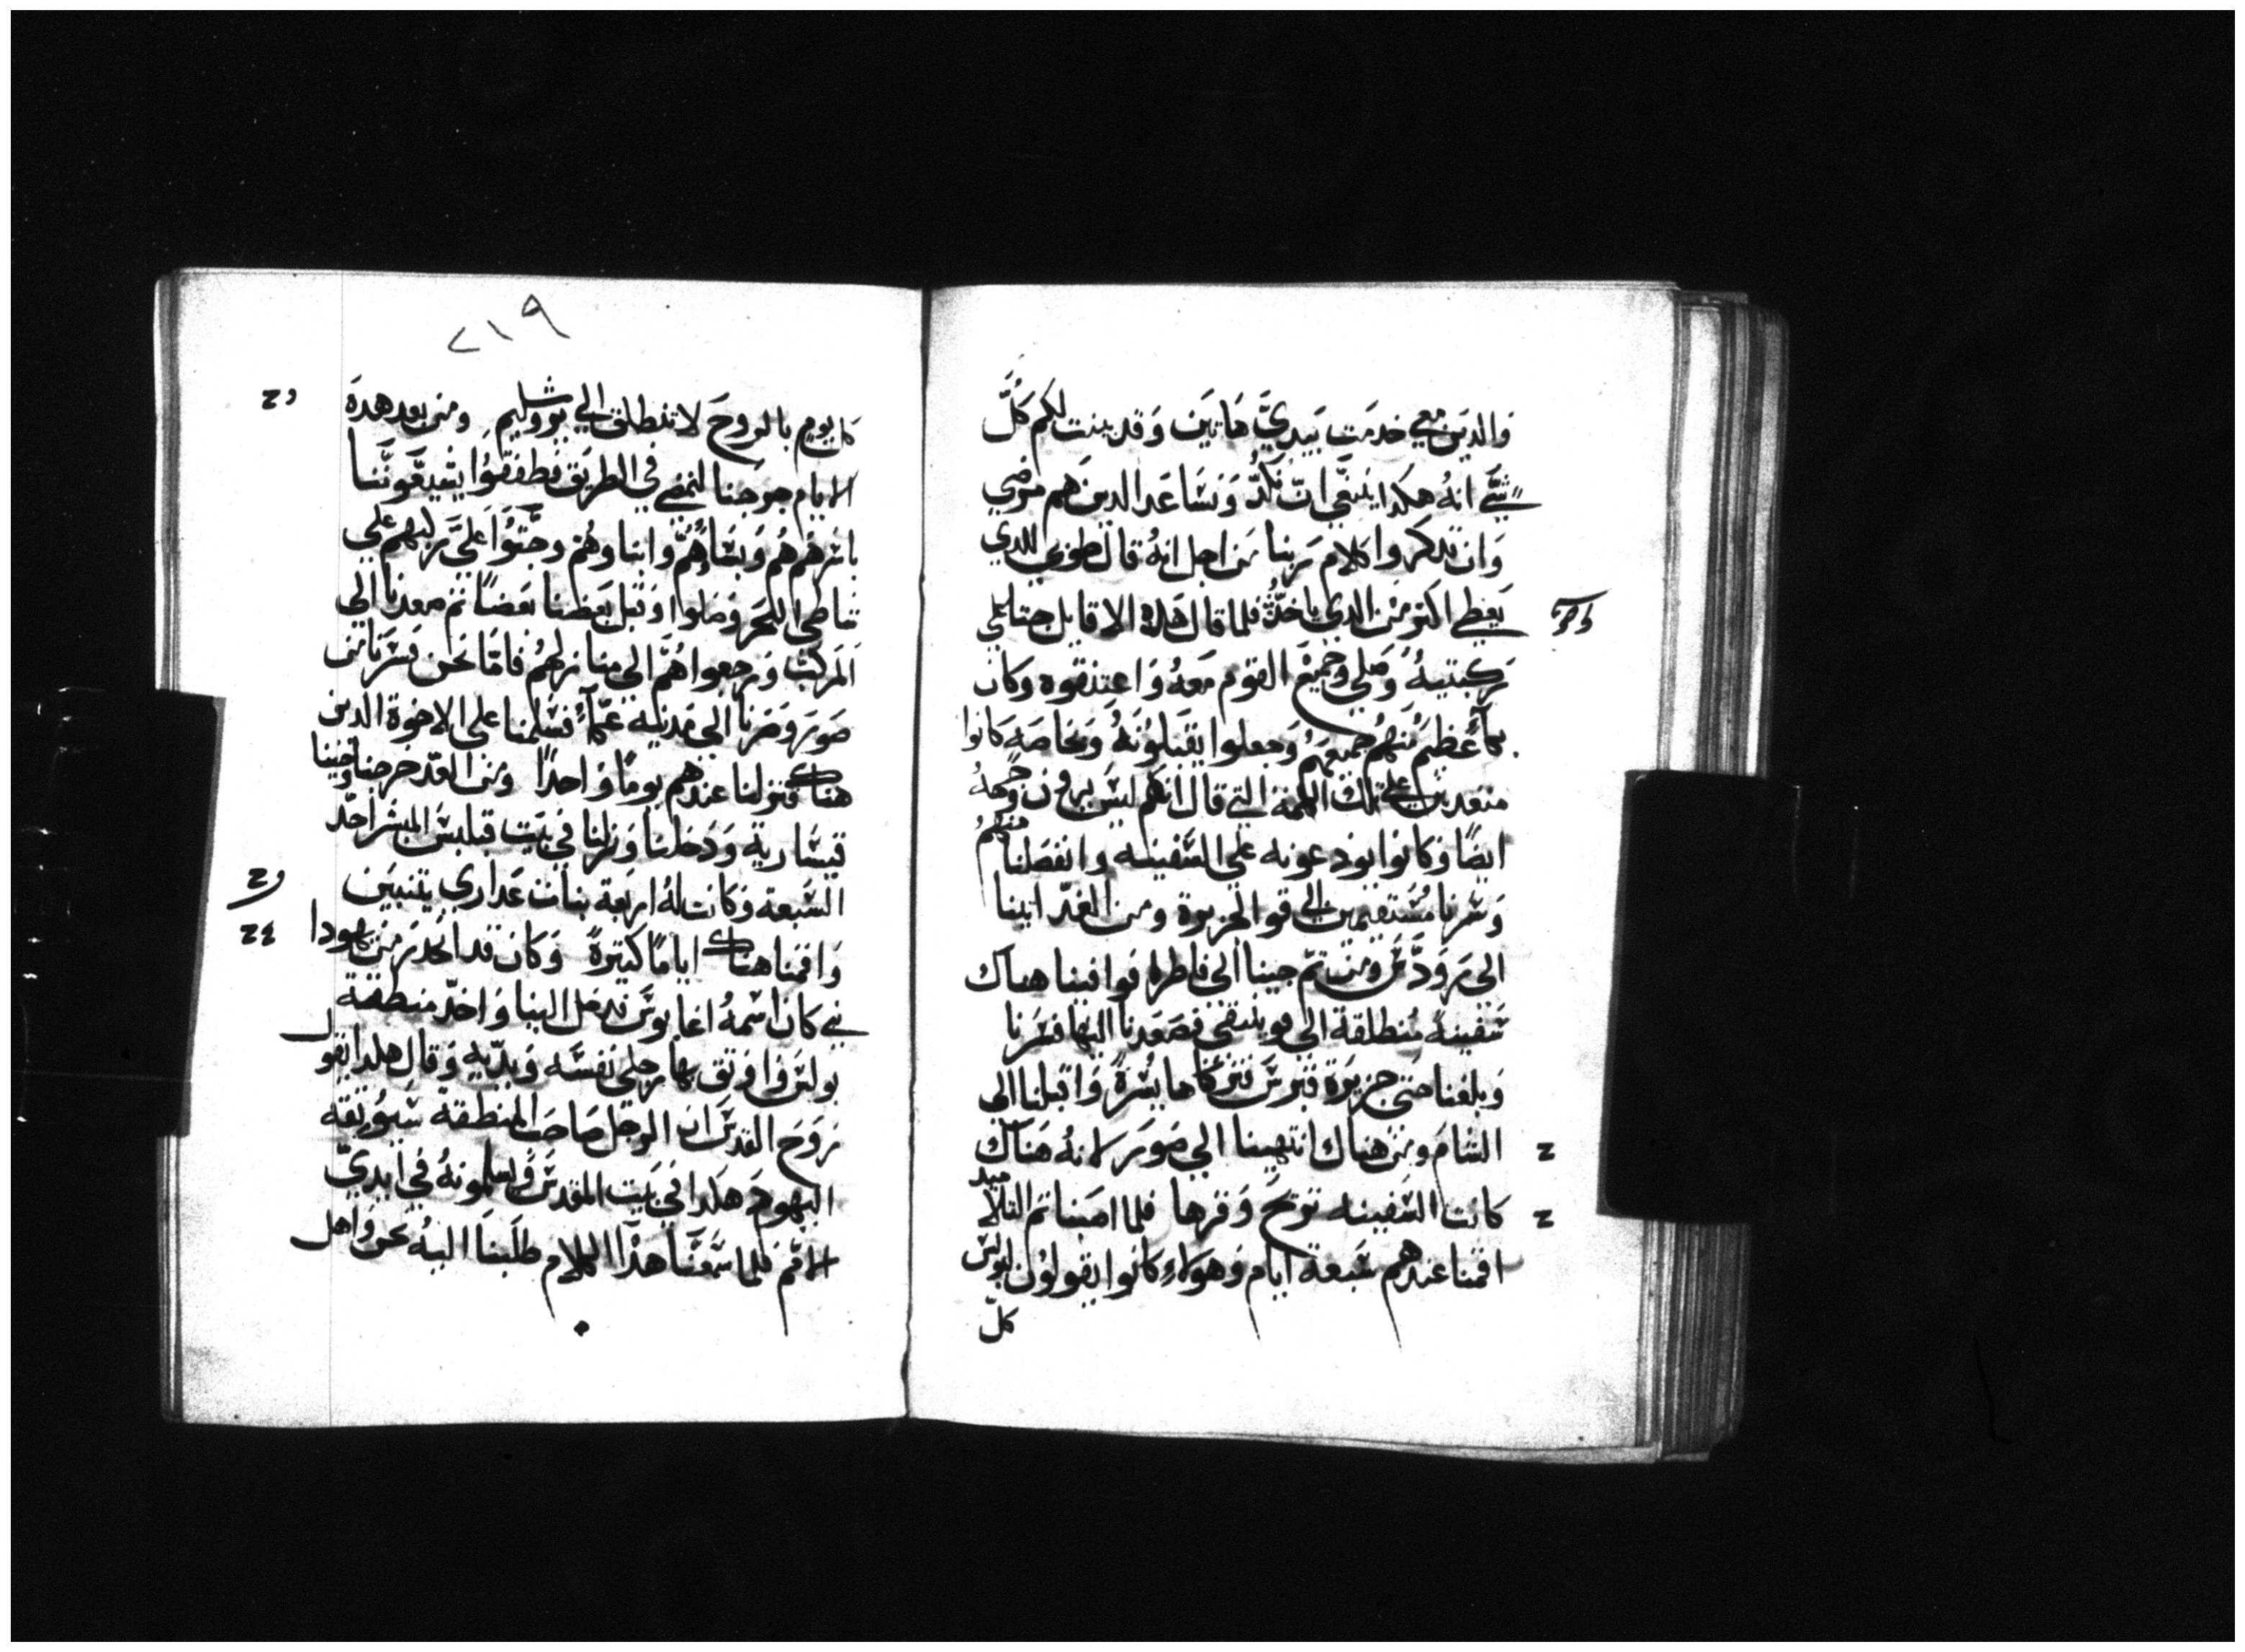 والدين معي خدمت بيدي هاتين وقد بينت لكم كل
شي انه هكدا ينبغي ان نكد ونساعد الدين هم مرضي
وان نتدكروا كلام ربنا من اجل انه قال طوبي للدي
يعطي اكتر من الدي ياخد فلما قال هده الاقاويل جتا علي
ركبتيه وصلي وجميع القوم معه واعتنقوه وكان
بكاء عظيم منهم جميعهم وجعلوا يقبلونه وبخاصه كانوا
متعدبين علي تلك الكلمة التي قال انكم ليس ترون وجهه
ايضا وكانوا يودعونه علي السفينه وانفصلنا منهم
وسرنا مستقيمين الي قوا الجزيرة ومن الغد اتينا
الي رودس ومن تم جينا الي فاطرا فوافينا هناك
سفينة منطلقة الي فوينيقي فصعدنا اليها فسرنا
وبلغنا حتي جزيرة قبرس فتركناها يسرة واقبلنا الي
الشام ومن هناك انتهينا الي صور لانه هناك
كانت السفينه توضح وقرها فلما اصبنا تم التلاميد
اقمنا عندهم سبعة ايام وهولاء كانوا يقولون لبولس
كل
٢١٩
كل يوم بالروح لا تنطلق الي يروشليم ومن بعد هده
الايام خرجنا لنمضي في الطريق فطفقوا يشيعوننا
باسرهم هم ونساؤهم وابناوهم وجتوا علي ركبهم علي
شاطي البحر وصلوا وقبل بعضنا بعضا تم صعدنا الي
المركب ورجعوا هم الي منازلهم فاما نحن فسرنا من
صور وصرنا الي مدينه عكا فسلمنا علي الاخوة الدين
هناك فنزلنا عندهم يوما واحدا ومن الغد خرجنا وجينا
قيسارية ودخلنا ونزلنا في بيت فيلبس المبشر احد
السبعة وكانت له اربعة بنات عداري يتنبين
واقمنا هناك اياما كتيرة وكان قد انحدر من يهودا
نبي كان اسمه اغابوس فدخل الينا واخد منطقة
بولس فاوتق بها رجلي نفسه ويديه وقال هكدا يقول
روح القدس ان الرجل صاحب المنطقة سيوتقه
اليهود هكدا في بيت المقدس ويسلمونه في ايدي
الامم فلما سمعنا هدا الكلام طلبنا اليه نحن واهل